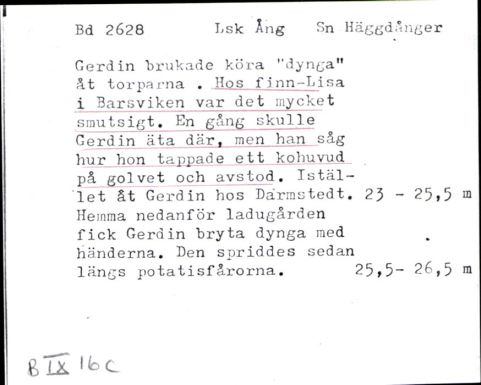 Bd 2628 Lsk Ång Sn Häggdånger
Gerdin brukade köra "dynga"
åt torparna . Hos finn-Lisa
i Barsviken var det mycket
smutsigt. En gång skulle
Gerdin äta där, men han såg
hur hon tappade ett kohuvud
på golvet och avstod. Istäl-
let åt Gerdin hos Darmstedt. 23 - 25,5 m
Hemma nedanför ladugården
fick Gerdin bryta dynga med
händerna. Den spriddes sedan
längs potatisfårorna. 25,5- 26,5 m
B IX 16 C